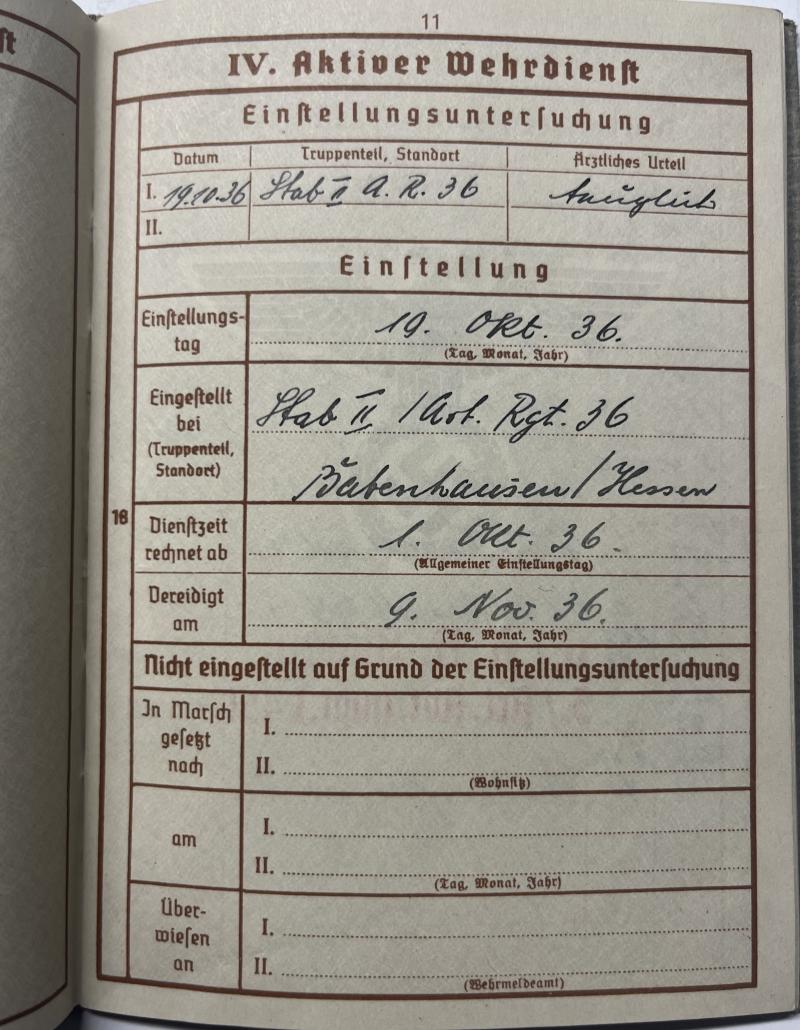 ſt
11
IV. Aktiver Wehrdienſt
Einſtellungsunterſuchung
Datum Truppenteil, Standort Ärztliches Urteil
I. 19.10.36 Stab II A. R. 36 tauglich
II.
Einſtellung
Einſtellungs-
tag
19. Okt. 36.
(Tag, Monat, Jahr)
Eingeſtellt
bei
(Truppenteil,
Standort)
Stab II / Art. Rgt. 36
Babenhausen / Hessen
16
Dienſtzeit
rechnet ab
1. Okt. 36.
(Allgemeiner Einſtellungstag)
Vereidigt
am
9. Nov. 36.
(Tag, Monat, Jahr)
Nicht eingeſtellt auf Grund der Einſtellungsunterſuchung
In Marſch
geſetzt
nach
I.
II.
(Wohnſitz)
am
I.
II.
(Tag, Monat, Jahr)
Über-
wieſen
an
I.
II.
(Wehrmeldeamt)